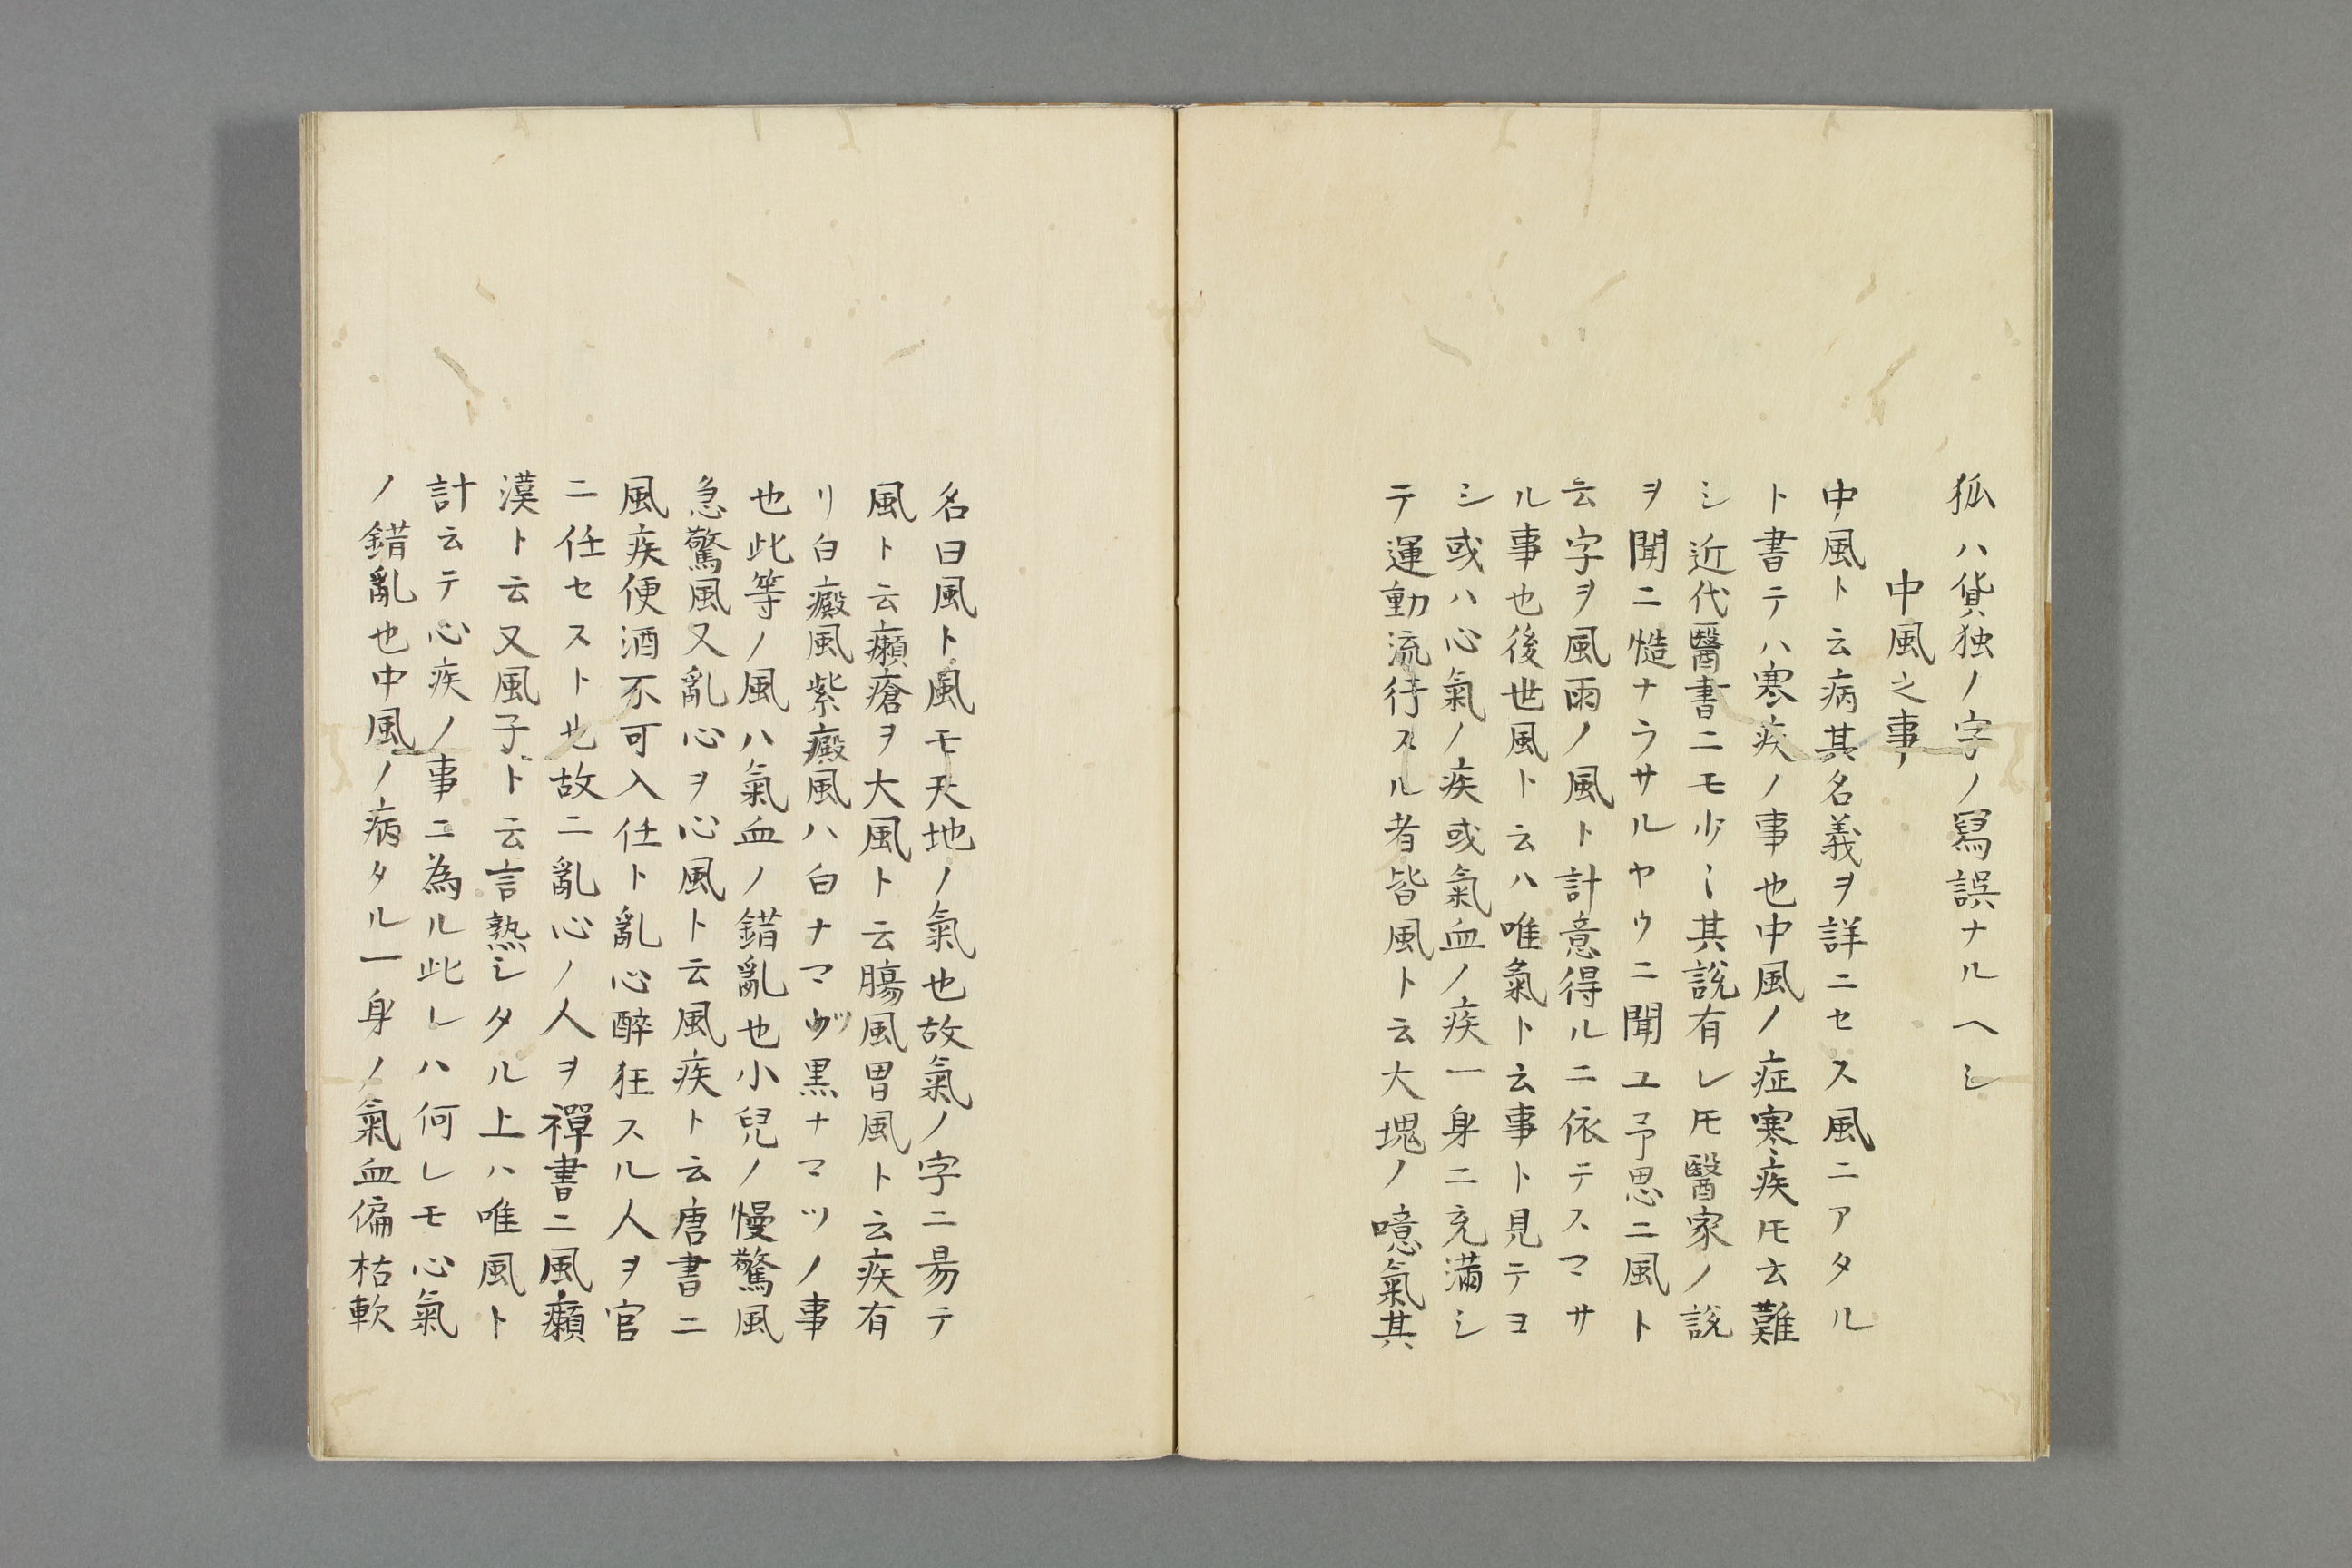 狐ハ貨独ノ字ノ寫誤ナルヘシ
中風之事
中風ト云病其名義ヲ詳ニセス風ニアタル
ト書テハ寒疾ノ事也中風ノ症寒疾𪜈云難
シ近代醫書ニモ少〻其說有レ𪜈醫家ノ說
ヲ聞ニ慥ナラサルヤウニ聞ユ予思ニ風ト
云字ヲ風雨ノ風ト計意得ルニ依テスマサ
ル事也後世風ト云ハ唯氣ト云事ト見テヨ
シ或ハ心氣ノ疾或氣血ノ疾一身ニ充滿シ
テ運動流行スル者皆風ト云大塊ノ噫氣其
名曰風ト風モ天地ノ氣也故氣ノ字ニ昜テ
風ト云癩瘡ヲ大風ト云膓風胃風ト云疾有
リ白癜風紫癜風ハ白ナマヅ黒ナマツノ事
也此等ノ風ハ氣血ノ錯亂也小兒ノ慢驚風
急驚風又亂心ヲ心風ト云風疾ト云唐書ニ
風疾便酒不可入仕ト亂心醉狂スル人ヲ官
ニ任セスト也故ニ亂心ノ人ヲ禪書ニ風癲
漢ト云又風子ト云言熱シタル上ハ唯風ト
計云テ心疾ノ事ニ為ル此レハ何レモ心氣
ノ錯亂也中風ノ病タル一身ノ氣血偏枯軟